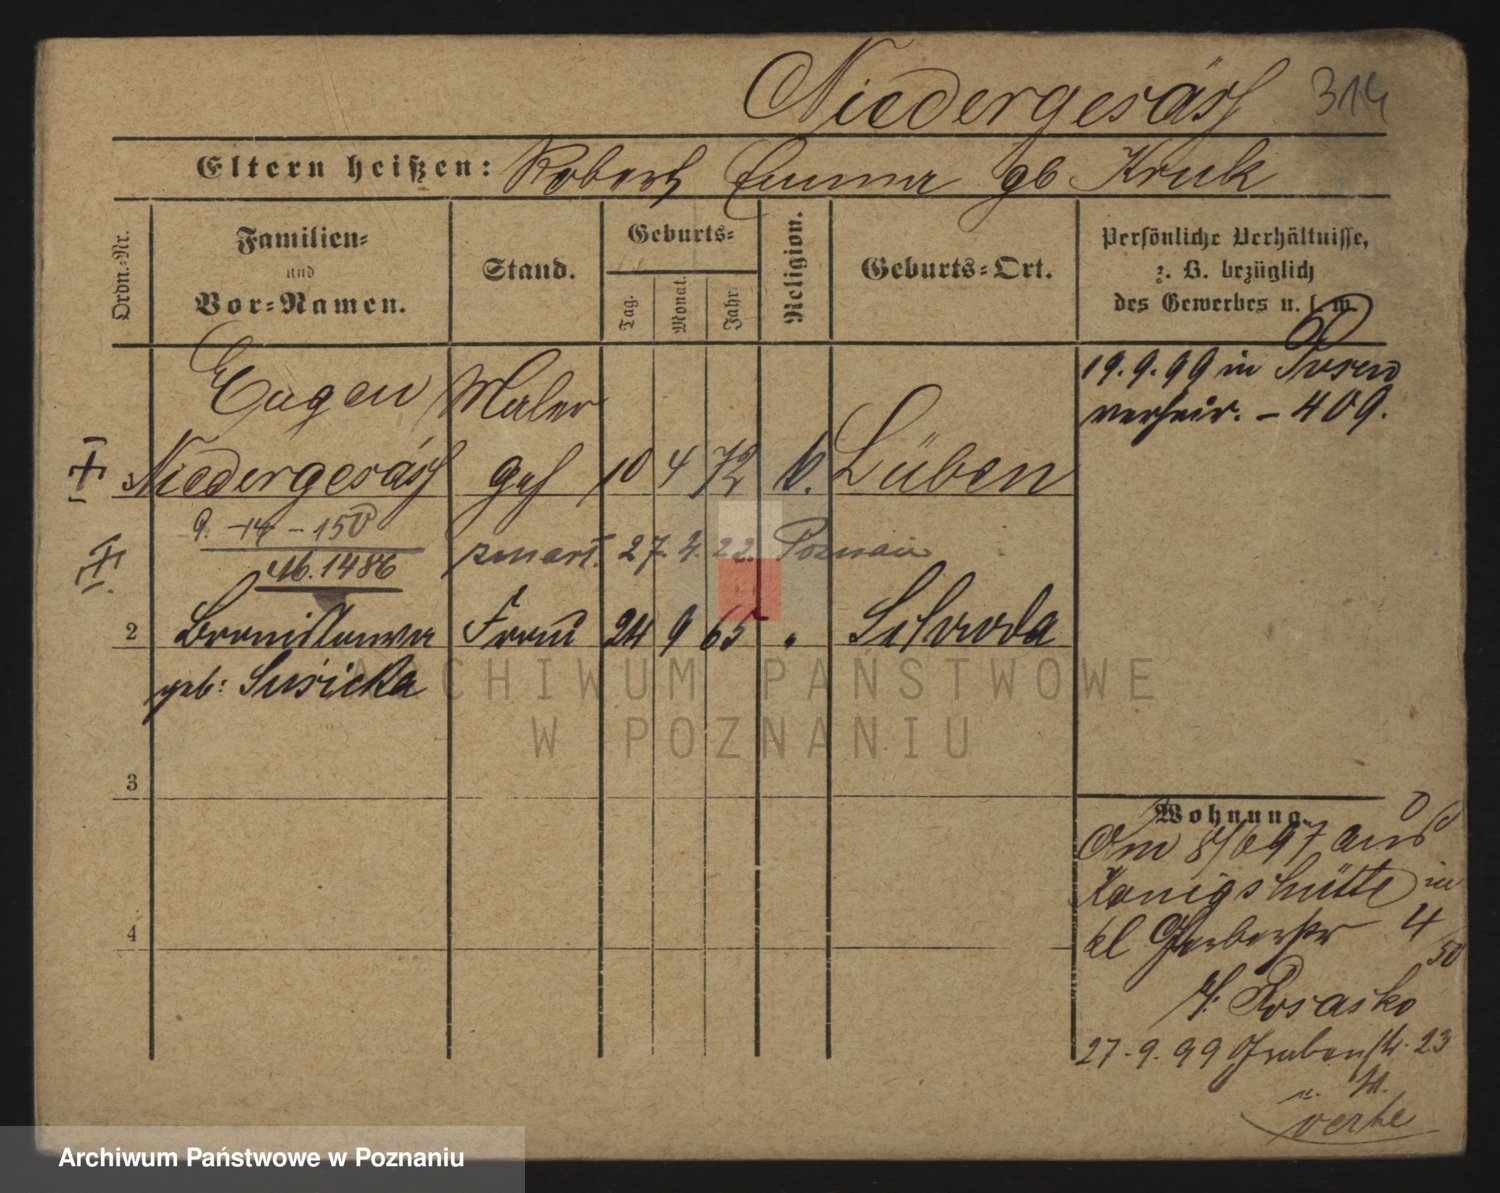 Niedergesäss 314
Eltern heißen: Robert Emma gb Kruk
Ordn.-Nr.
Familien-
und
Vor-Namen.
Stand.
Geburts-
Tag.
Monat.
Jahr.
Religion.
Geburts-Ort.
Persönliche Verhältnisse,
z. B. bezüglich
des Gewerbes u. s. w.
Eugen Maler
Niedergesäss geh 10 4 72 k. Lüben
19.9.99 in Posen
verheir. - 409.
9. -14 - 150
16.1486
zmarł. 27.4.22. Poznań
2 Bronislawa Frau 24 9 65 " Schroda
geb: Susicka
3
4
Wohnung.
Am 8/6 97 aus
Königshütte in
kl Gerberstr 4
50
Rosasko
27.9.99 Grabenstr. 23
ARCHIWUM PAŃSTWOWE
W POZNANIU
Archiwum Państwowe w Poznaniu